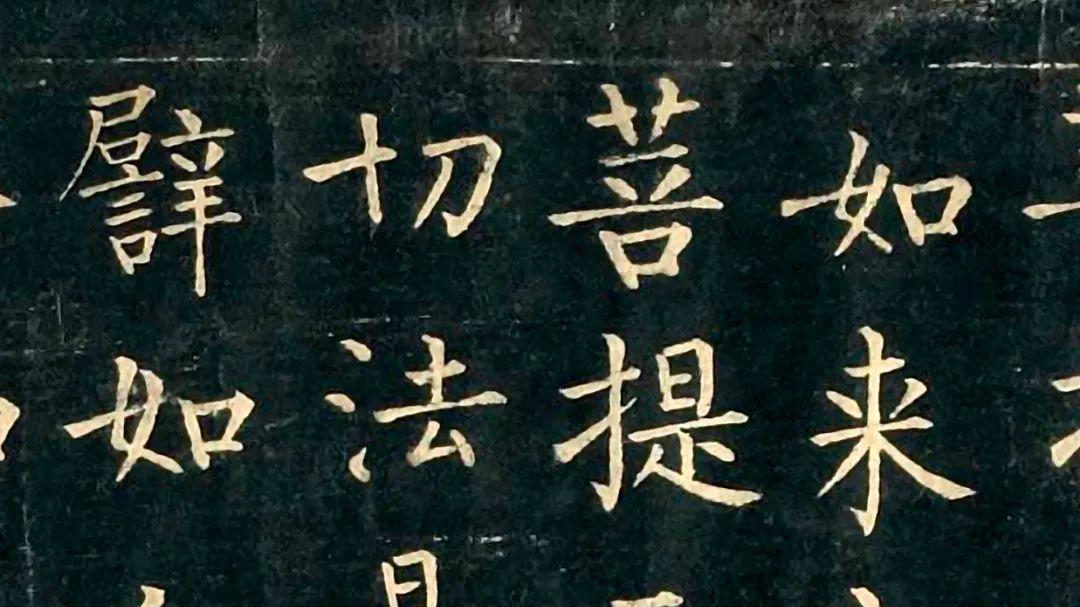 如来
菩提
切法
譬如